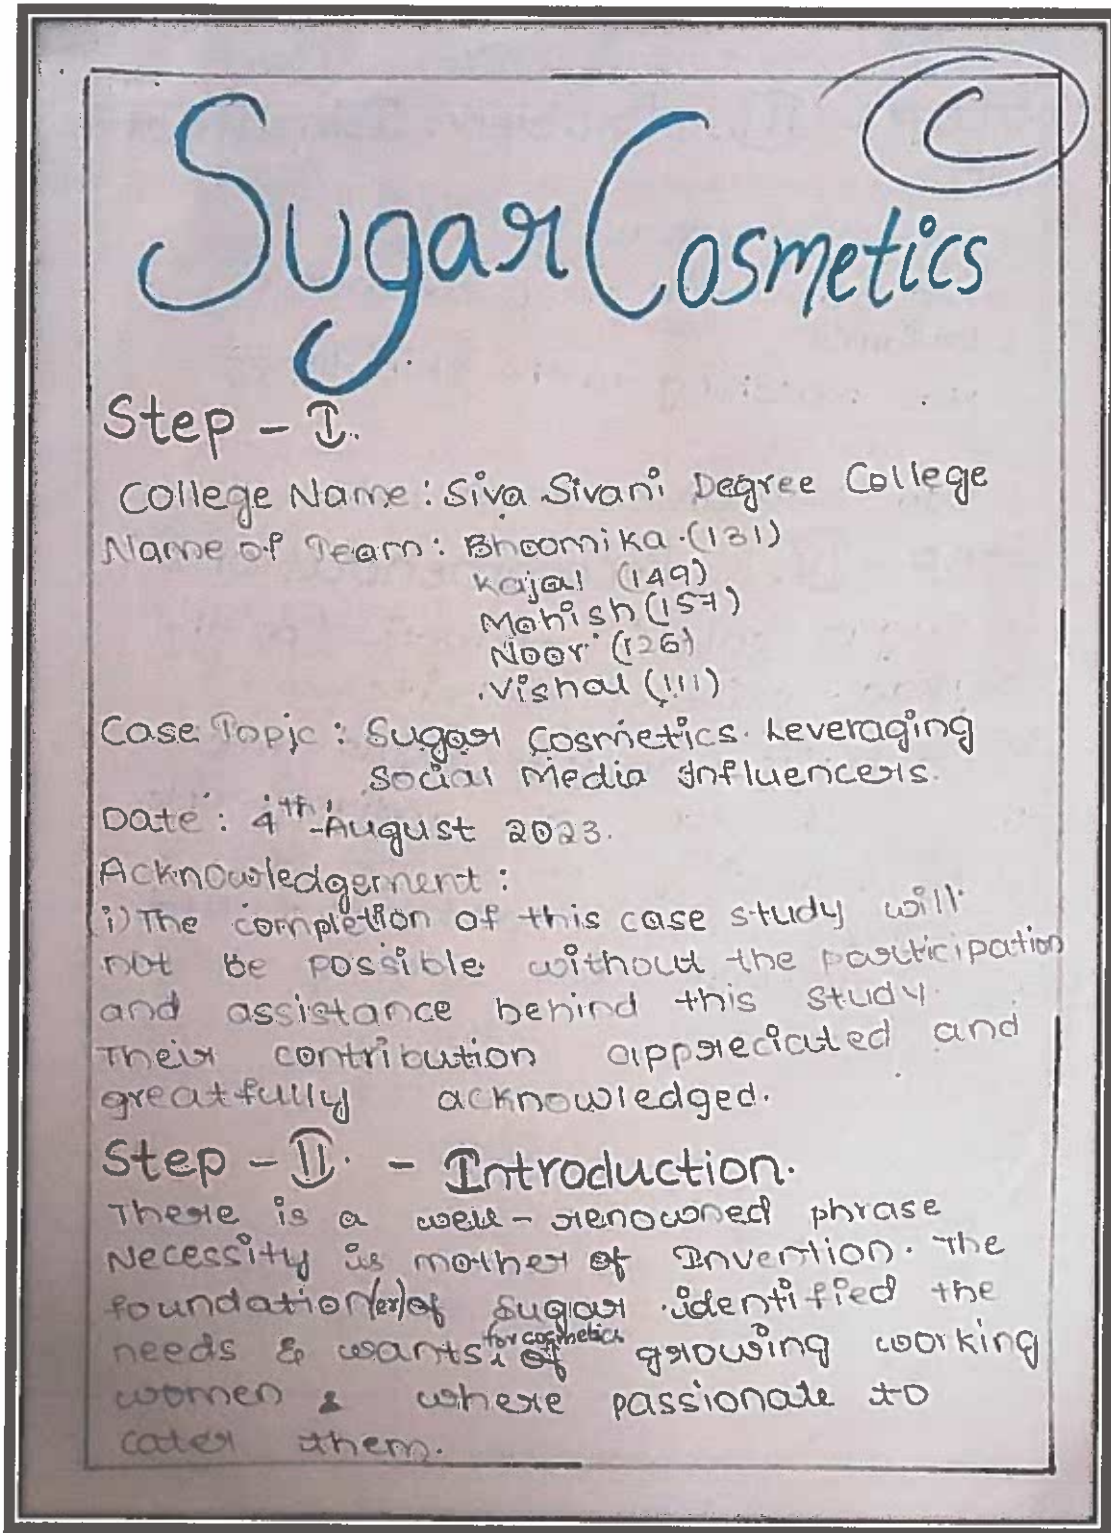 C
Sugar Cosmetics
Step - I.
College Name : Siva Sivani Degree College
Name of Team : Bhoomika (131)
Kajal (149)
Mohish (157)
Noor (126)
Vishal (111)
Case Topic : Sugar Cosmetics Leveraging
Social Media Influencers.
Date : 4th August 2023.
Acknowledgement :
i) The completion of this case study will
not be possible without the participation
and assistance behind this study.
Their contribution appreciated and
greatfully acknowledged.
Step - II. - Introduction.
There is a well-renowned phrase
Necessity is mother of Invention. The
foundation/(er) of Sugar identified the
needs & wants for cosmetics of growing working
women & where passionate to
cater them.